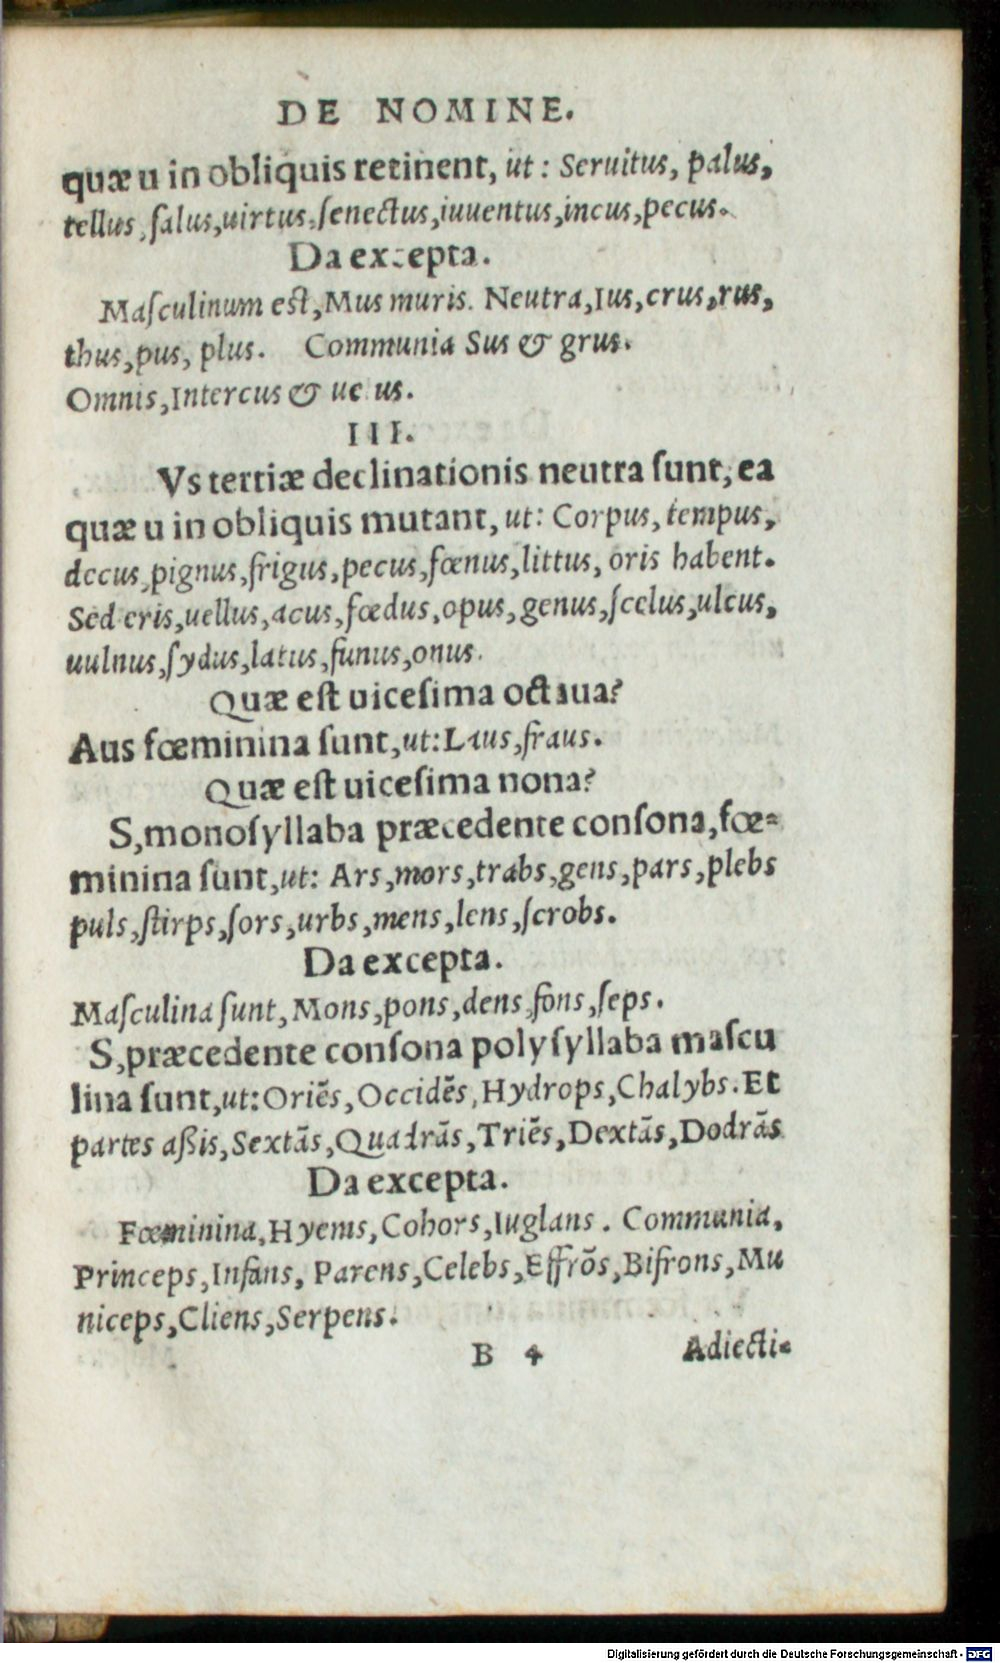 DE NOMINE.
quæ u in obliquis retinent, ut: Seruitus, palus,
tellus, ſalus, uirtus, ſenectus, iuuentus, incus, pecus.
Da excepta.
Maſculinum eſt, Mus muris. Neutra, Ius, crus, rus,
thus, pus, plus. Communia Sus & grus.
Omnis, Intercus & ue us.
III.
Vs tertiæ declinationis neutra ſunt, ea
quæ u in obliquis mutant, ut: Corpus, tempus,
decus, pignus, frigus, pecus, fœnus, littus, oris habent.
Sed eris, uellus, acus, fœdus, opus, genus, ſcelus, ulcus,
uulnus, ſydus, latus, funus, onus.
Quæ eſt uiceſima octaua?
Aus fœminina ſunt, ut: Laus, fraus.
Quæ eſt uiceſima nona?
S, monoſyllaba præcedente conſona, fœ-
minina ſunt, ut: Ars, mors, trabs, gens, pars, plebs
puls, ſtirps, ſors, urbs, mens, lens, ſcrobs.
Da excepta.
Maſculina ſunt, Mons, pons, dens, fons, ſeps.
S, præcedente conſona polyſyllaba maſcu
lina ſunt, ut: Oriẽs, Occidẽs, Hydrops, Chalybs. Et
partes aßis, Sextãs, Quadrãs, Triẽs, Dextãs, Dodrãs
Da excepta.
Fœminina, Hyems, Cohors, Iuglans. Communia,
Princeps, Infans, Parens, Celebs, Effrõs, Bifrons, Mu
niceps, Cliens, Serpens.
B 4 Adiecti-
Digitalisierung gefördert durch die Deutsche Forschungsgemeinschaft - DFG